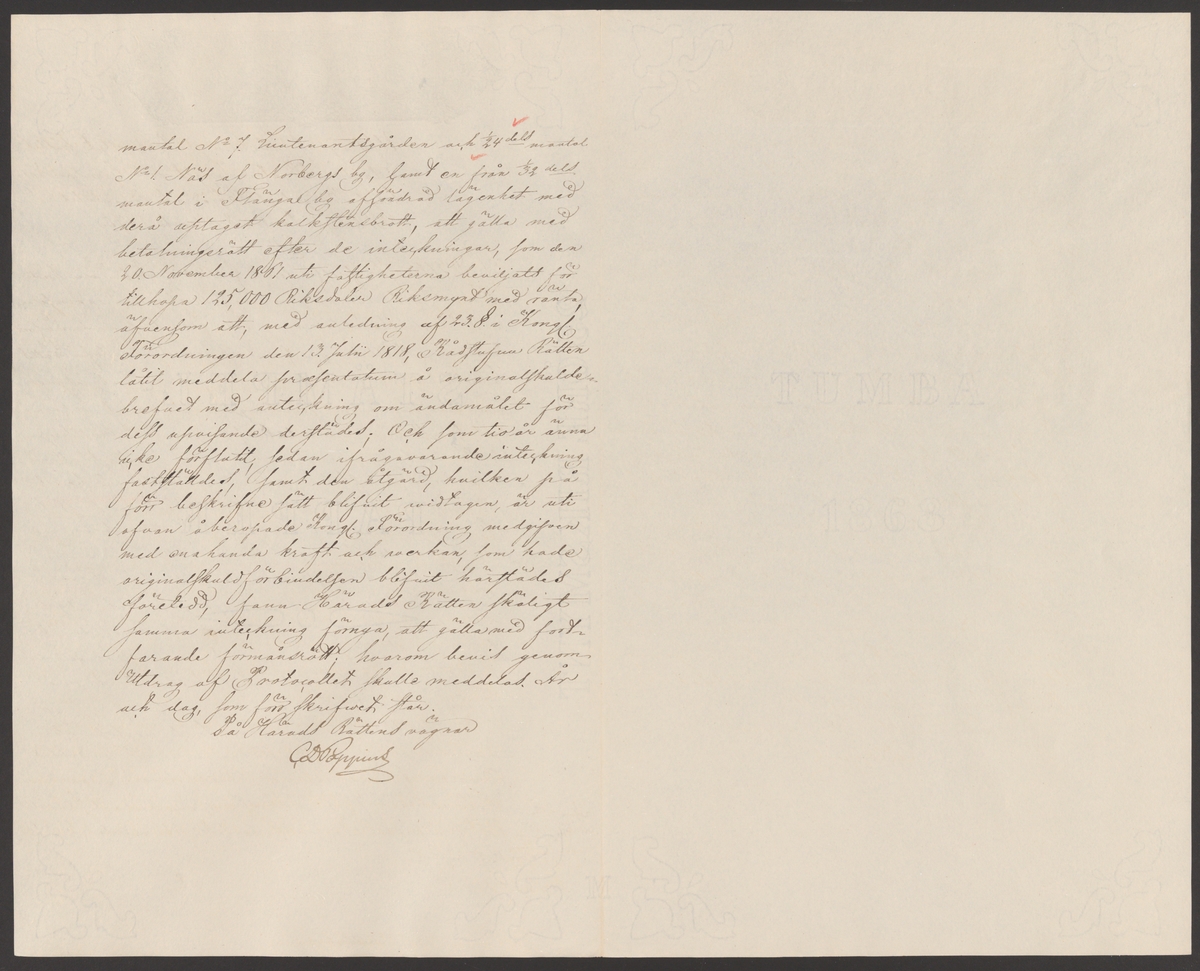 mantal No 7 Lieutenantsgården och 1/24 dels mantal
No 1. Näs af Norbergs by, samt en från 1/32 dels
mantal i by afsöndrad lägenhet med
derå uptaget kalkstensbrott, att gälla med
betalningsrätt efter de inteckningar, som den
30 November 1861 uti fastigheterna beviljats för
tillhopa 125,000 Riksdaler Riksmynt med ränta,
äfvensom att, med anledning af 23. § i Kongl
Förordningen den 13. Julii 1818, Rådstufvu Rätten
låtit meddela præsentatum å originalskulde-
brefvet med anteckning om ändamålet för
dess upvisande derstädes; Och som tio år ännu
icke förflutit, sedan ifrågavarande inteckning
fastställdes, samt den åtgärd, hvilken på
förr beskrifne sätt blifvit widtagen, är uti
ofvan åberopade Kongl. Förordning medgifven
med enahanda kraft och verkan, som hade
originalskuldförbindelsen blifvit härstädes
företedd, fann Härads Rätten skäligt
samma inteckning förnya, att gälla med fort-
farande förmånsrätt; hvarom bevis genom
Utdrag af Protocollet skulle meddelas. År
och dag, som förr skrifwet står.
På Härads Rättens vägnar
C D Poppius
TUMBA